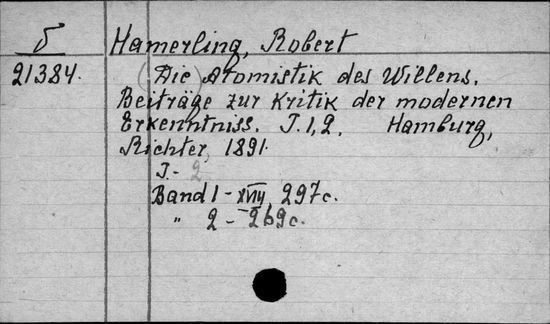 δ
Hamerling, Robert
21384.
(Die) Atomistik des Willens.
Beiträge zur Kritik der modernen
Erkenntniss. T. 1, 2. Hamburg,
Richter, 1891.
T. - 2
Band 1 - XVIII, 297 c.
" 2 - 269 c.